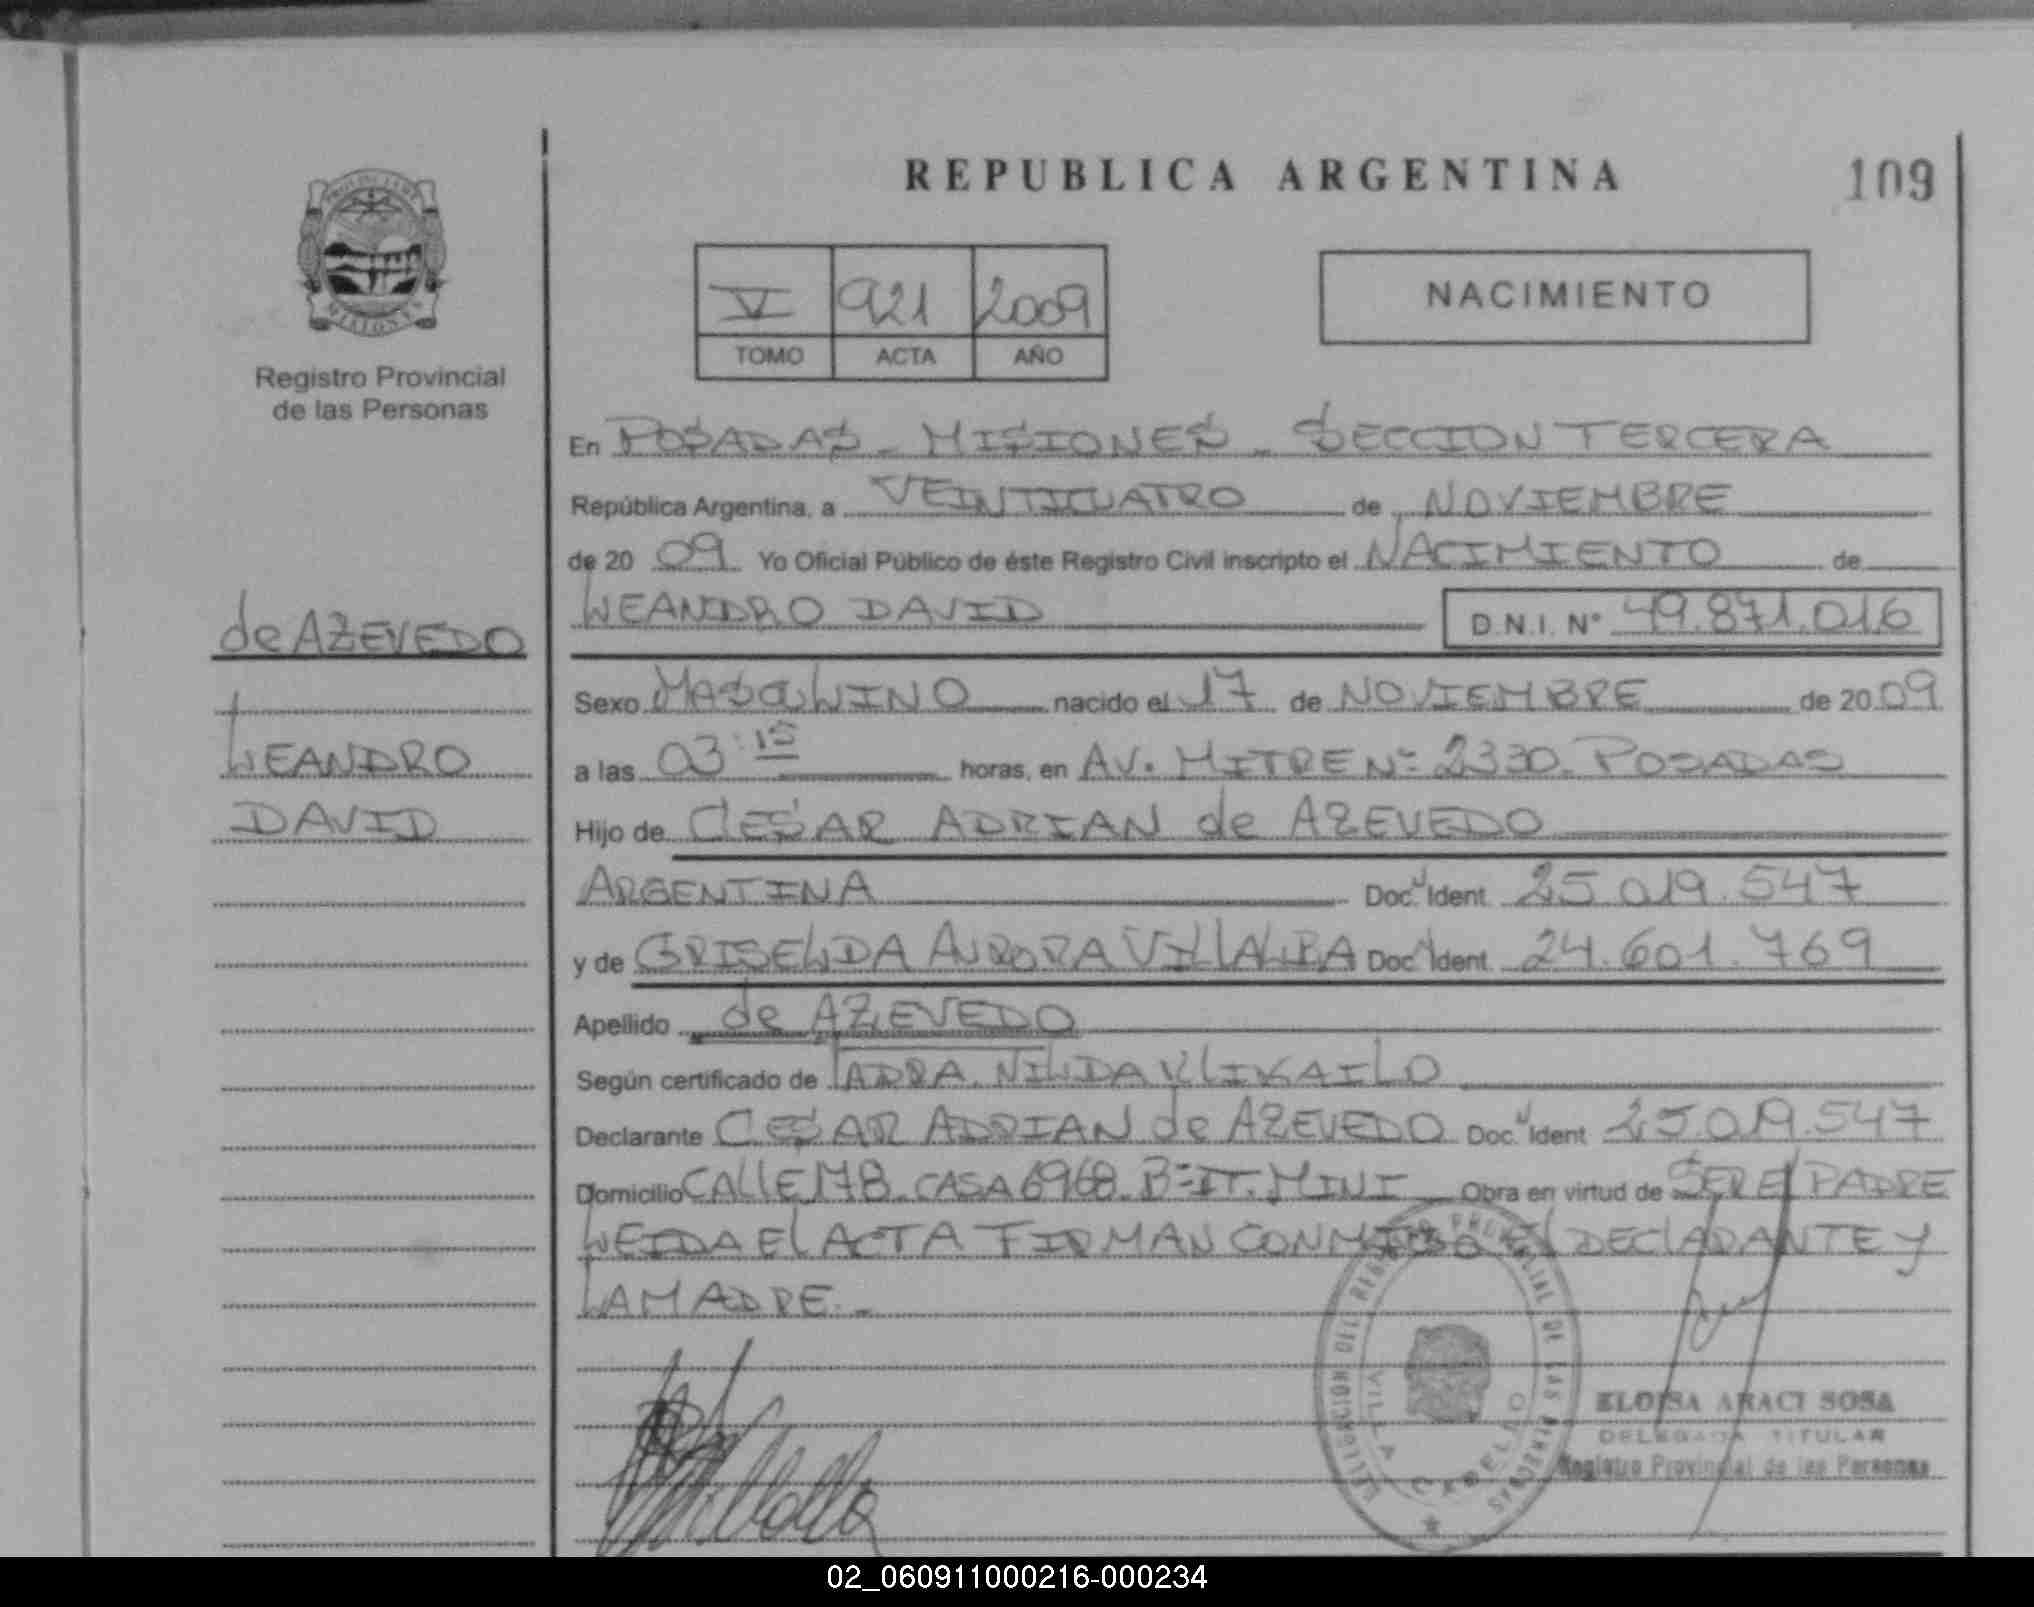 REPUBLICA ARGENTINA
109
V 921 2009
TOMO ACTA AÑO
NACIMIENTO
Registro Provincial
de las Personas
En POSADAS - MISIONES - SECCION TERCERA
República Argentina, a VEINTICUATRO de NOVIEMBRE
de 20 09 Yo Oficial Público de éste Registro Civil inscripto el NACIMIENTO de
LEANDRO DAVID D.N.I. Nº 49.871.016
de AZEVEDO
LEANDRO
DAVID
Sexo MASCULINO nacido el 17 de NOVIEMBRE de 20 09
a las 03:15 horas, en AV. MITRE Nº 2330. POSADAS
Hijo de CESAR ADRIAN de AZEVEDO
ARGENTINA Doc. Ident. 25.019.547
y de GRISELDA AURORA VILLALBA Doc. Ident. 24.601.769
Apellido de AZEVEDO
Según certificado de NILDA
Declarante CESAR ADRIAN de AZEVEDO Doc. Ident 25.019.547
Domicilio CALLE 178. CASA 6968. Bº IT. MINI Obra en virtud de SER EL PADRE
LEIDA EL ACTA FIRMAN CONMIGO EL DECLARANTE Y
LA MADRE.-
DELEGACION DEL REGISTRO PROVINCIAL DE LAS PERSONAS
VILLA CABELLO
ELOISA ARACI SOSA
DELEGADA TITULAR
Registro Provincial de las Personas
02_060911000216-000234